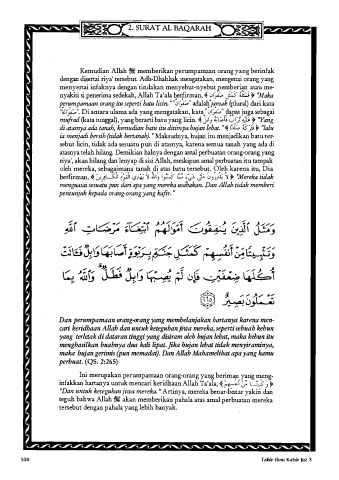 2. SURAT AL BAQARAH
Kemudian Allah ﷻ memberikan perumpamaan orang yang berinfak
dengan disertai riya' tersebut. Adh-Dhahhak mengatakan, mengenai orang yang
menyertai infaknya dengan tindakan menyebut-nyebut pemberian atau me-
nyakiti si penerima sedekah, Allah Ta'ala berfirman, ﴿ فَمَثَلُهُ كَمَثَلِ صَفْوَانٍ ﴾ "Maka
perumpamaan orang itu seperti batu licin." "صَفْوَانٌ" adalah jamak (plural) dari kata
"صَفْوَانَةٌ". Di antara ulama ada yang mengatakan, kata "صَفْوَانٌ" dapat juga sebagai
mufrad (kata tunggal), yang berarti batu yang licin. ﴿ عَلَيْهِ تُرَابٌ فَأَصَابَهُ وَابِلٌ ﴾ "Yang
di atasnya ada tanah, kemudian batu itu ditimpa hujan lebat." ﴿ فَتَرَكَهُ صَلْدًا ﴾ "Lalu
ia menjadi bersih (tidak bertanah)." Maksudnya, hujan itu menjadikan batu ter-
sebut licin, tidak ada sesuatu pun di atasnya, karena semua tanah yang ada di
atasnya telah hilang. Demikian halnya dengan amal perbuatan orang-orang yang
riya', akan hilang dan lenyap di sisi Allah, meskipun amal perbuatan itu tampak
oleh mereka, sebagaimana tanah di atas batu tersebut. Oleh karena itu, Dia
berfirman, ﴿ لَا يَقْدِرُونَ عَلَى شَيْءٍ مِمَّا كَسَبُوا وَاللَّهُ لَا يَهْدِي الْقَوْمَ الْكَافِرِينَ ﴾ "Mereka tidak
menguasai sesuatu pun dari apa yang mereka usahakan. Dan Allah tidak memberi
petunjuk kepada orang-orang yang kafir."
وَمَثَلُ الَّذِينَ يُنفِقُونَ أَمْوَالَهُمُ ابْتِغَاءَ مَرْضَاتِ اللَّهِ
وَتَثْبِيتًا مِّنْ أَنفُسِهِمْ كَمَثَلِ جَنَّةٍ بِرَبْوَةٍ أَصَابَهَا وَابِلٌ فَآتَتْ
أُكُلَهَا ضِعْفَيْنِ فَإِن لَّمْ يُصِبْهَا وَابِلٌ فَطَلٌّ وَاللَّهُ بِمَا
تَعْمَلُونَ بَصِيرٌ ٢٦٥
Dan perumpamaan orang-orang yang membelanjakan hartanya karena men-
cari keridhaan Allah dan untuk keteguhan jiwa mereka, seperti sebuah kebun
yang terletak di dataran tinggi yang disiram oleh hujan lebat, maka kebun itu
menghasilkan buahnya dua kali lipat. Jika hujan lebat tidak menyiraminya,
maka hujan gerimis (pun memadai). Dan Allah Mahamelihat apa yang kamu
perbuat. (QS. 2:265)
Ini merupakan perumpamaan orang-orang yang beriman yang meng-
infakkan hartanya untuk mencari keridhaan Allah Ta'ala, ﴿ وَتَثْبِيتًا مِنْ أَنْفُسِهِمْ ﴾
"Dan untuk keteguhan jiwa mereka." Artinya, mereka benar-benar yakin dan
teguh bahwa Allah ﷻ akan memberikan pahala atas amal perbuatan mereka
tersebut dengan pahala yang lebih banyak.
530
Tafsir Ibnu Katsir Juz 3